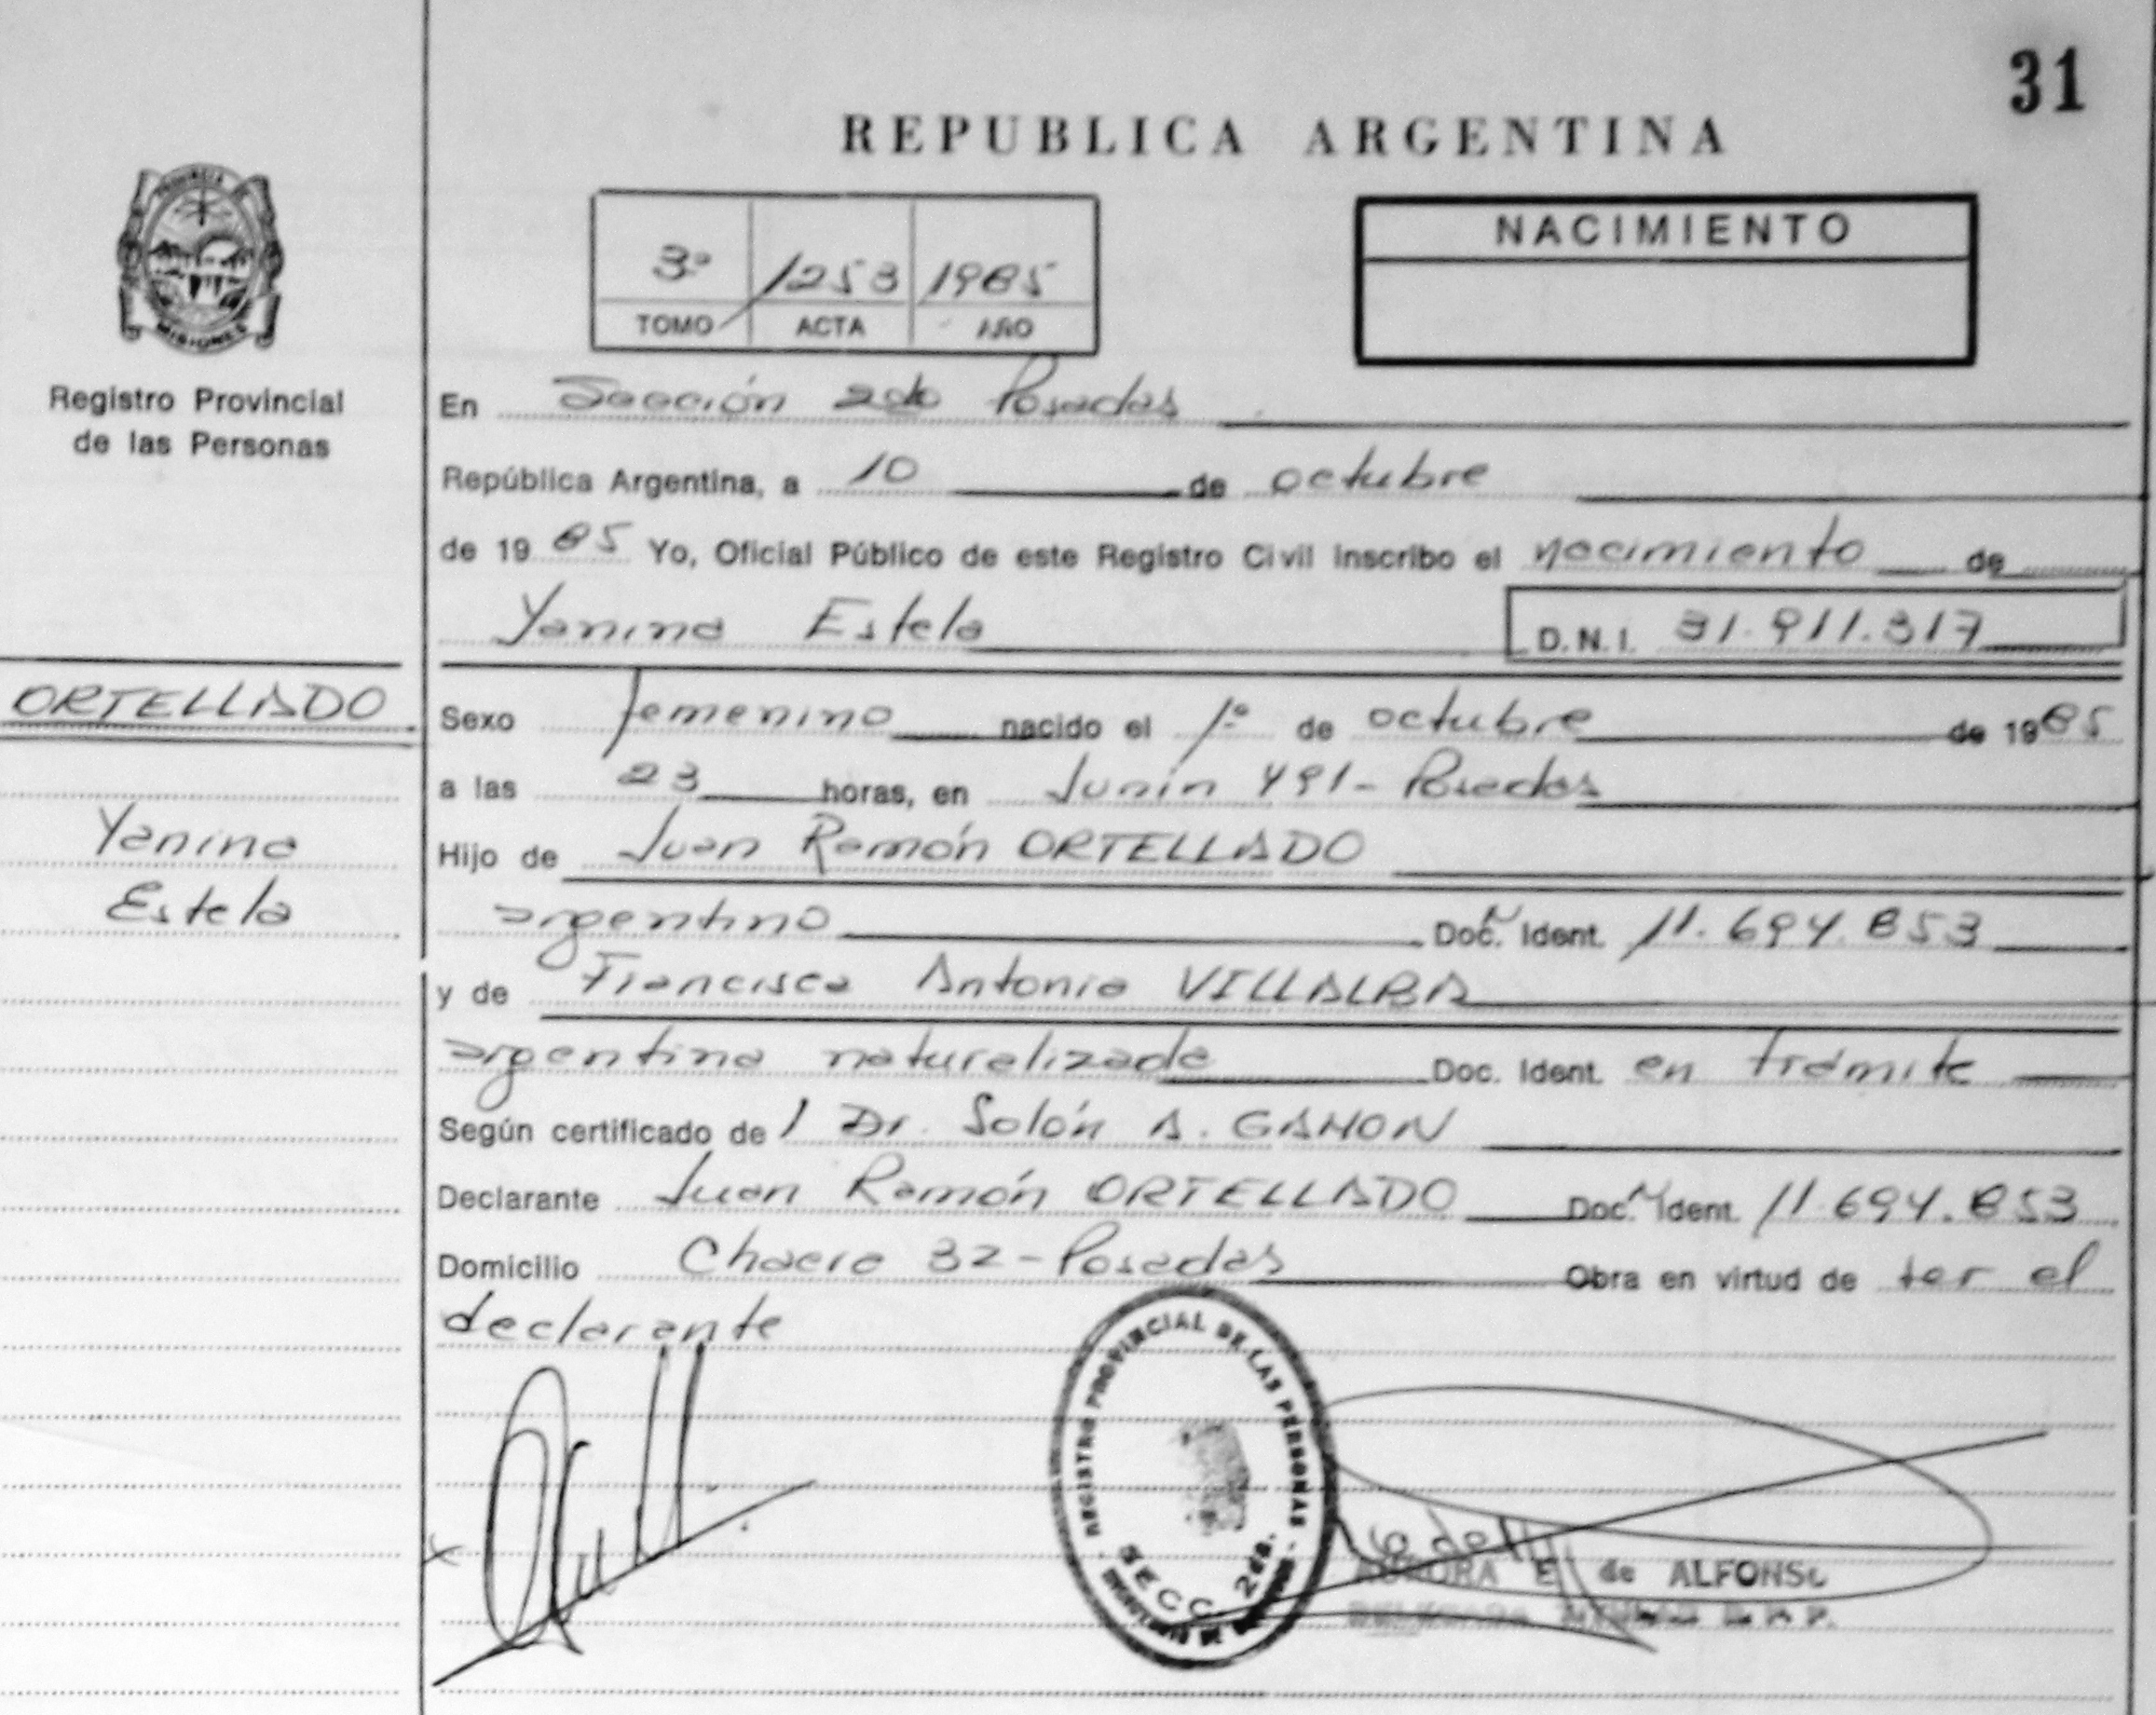 31
REPUBLICA ARGENTINA
PROVINCIA DE
MISIONES
Registro Provincial
de las Personas
3º 1253 1985
TOMO ACTA AÑO
NACIMIENTO
En Sección 2da Posadas
República Argentina, a 10 de octubre
de 1985 Yo, Oficial Público de este Registro Civil inscribo el nacimiento de
Yanina Estela D.N.I. 31.911.317
ORTELLADO
Yanina
Estela
Sexo femenino nacido el 1º de octubre de 1985
a las 23 horas, en Junín 491 - Posadas
Hijo de Juan Ramón ORTELLADO
argentino Doc. Ident. 11.694.853
y de Francisca Antonia VILLALBA
argentina naturalizada Doc. Ident. en trámite
Según certificado del Dr. Solón A. GAHON
Declarante Juan Ramón ORTELLADO Doc. Ident. 11.694.853
Domicilio Chacra 32 - Posadas Obra en virtud de ser el
declarante
REGISTRO PROVINCIAL DE LAS PERSONAS
SECC. 2da.
AURORA E. de ALFONSO